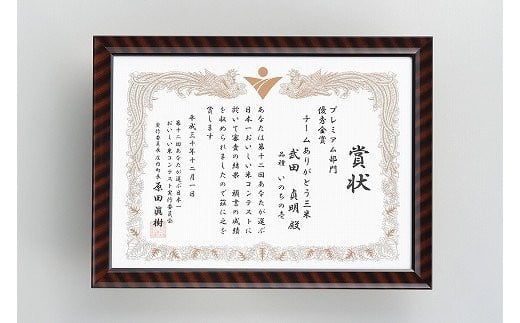 賞状
プレミアム部門
優秀金賞
チームありがとう三米
武田 貞明 殿
品種 いのちの壱
あなたは第十二回あなたが選ぶ
日本一おいしい米コンテストに
於いて審査の結果 頭書の成績
を収められましたので茲に之を
賞します
平成三十年十二月一日
第十二回あなたが選ぶ日本一
おいしい米コンテスト実行委員会
実行委員長 庄内町長 原田 眞樹